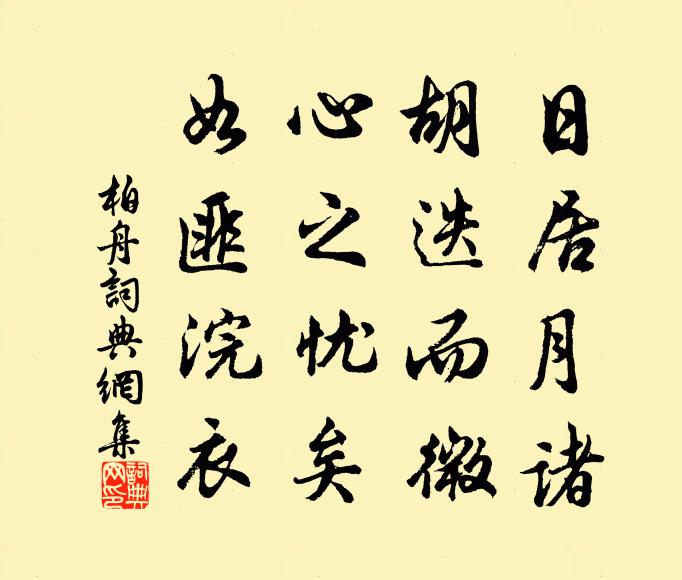 日居月诸
胡迭而微
心之忧矣
如匪浣衣
柏舟詞典網集
詞典网印